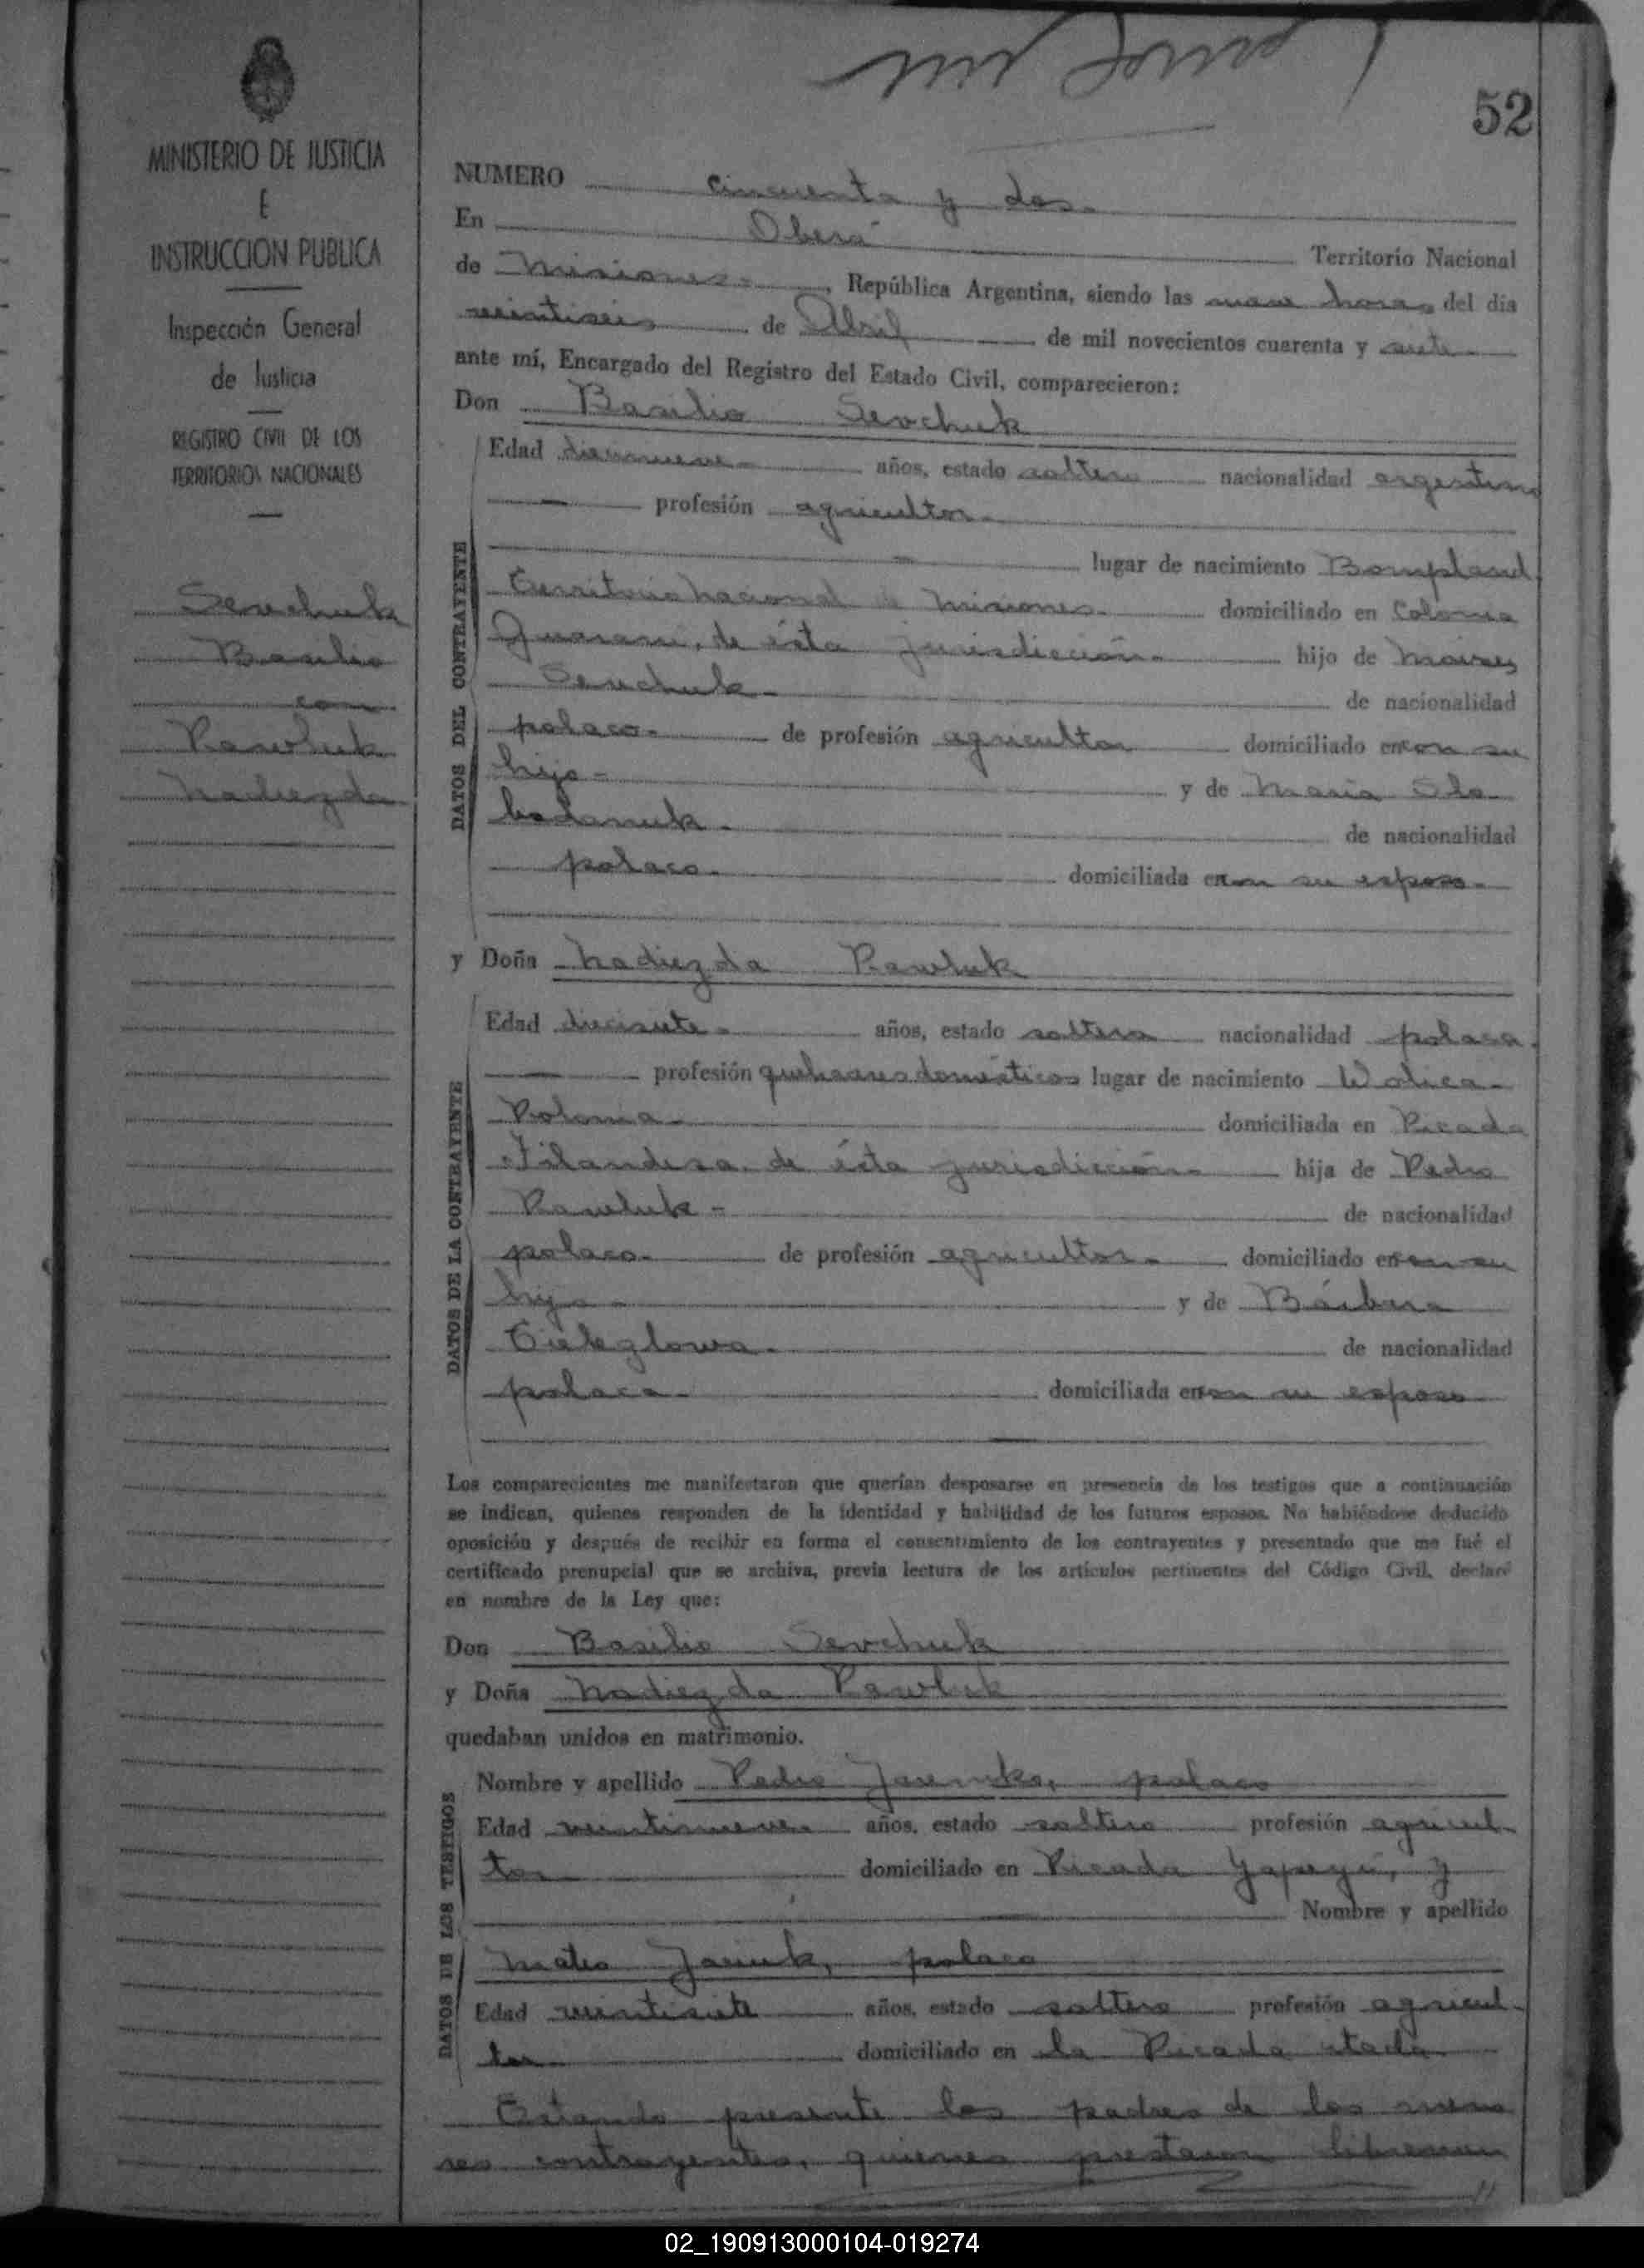 52
MINISTERIO DE JUSTICIA
E
INSTRUCCION PUBLICA
Inspección General
de Justicia
REGISTRO CIVIL DE LOS
TERRITORIOS NACIONALES
Sevchuk
Basilio
con
Pawluk
Nadiezda
NUMERO cincuenta y dos.
En Oberá Territorio Nacional
de Misiones. , República Argentina, siendo las nueve horas del día
veintiseis de Abril de mil novecientos cuarenta y siete
ante mí, Encargado del Registro del Estado Civil, comparecieron:
Don Basilio Sevchuk
DATOS DEL CONTRAYENTE
Edad diecinueve años, estado soltero nacionalidad argentino
profesión agricultor.
lugar de nacimiento Bompland
Territorio Nacional de Misiones. domiciliado en Colonia
Guaraní, de ésta jurisdicción. hijo de Moises
Sevchuk. de nacionalidad
polaco. de profesión agricultor domiciliado en con su
hijo y de María Slo
bodanuk. de nacionalidad
polaco. domiciliada en con su esposo.
y Doña Nadiezda Pawluk
DATOS DE LA CONTRAYENTE
Edad diecisiete. años, estado soltera nacionalidad polaca.
profesión quehaceres domésticos lugar de nacimiento Wolica
Polonia. domiciliada en Picada
Filandesa, de ésta jurisdicción. hija de Pedro
Pawluk de nacionalidad
polaco. de profesión agricultor. domiciliado en con su
hija y de Bárbara
de nacionalidad
polaca. domiciliada en con su esposo
Los comparecientes me manifestaron que querían desposarse en presencia de los testigos que a continuación
se indican, quienes responden de la identidad y habilidad de los futuros esposos. No habiéndose deducido
oposición y después de recibir en forma el consentimiento de los contrayentes y presentado que me fué el
certificado prenupcial que se archiva, previa lectura de los artículos pertinentes del Código Civil, declaré
en nombre de la Ley que:
Don Basilio Sevchuk
y Doña Nadiezda Pawluk
quedaban unidos en matrimonio.
DATOS DE LOS TESTIGOS
Nombre y apellido Pedro polaco
Edad veintinueve años, estado soltero profesión agricul-
tor domiciliado en Picada Yapeyú, y
Nombre y apellido
Mateo polaco
Edad veintisiete años, estado soltero profesión agricul-
tor domiciliado en la Picada citada
Estando presente los padres de los meno
res contrayentes, quienes prestaron libremen
02_190913000104-019274